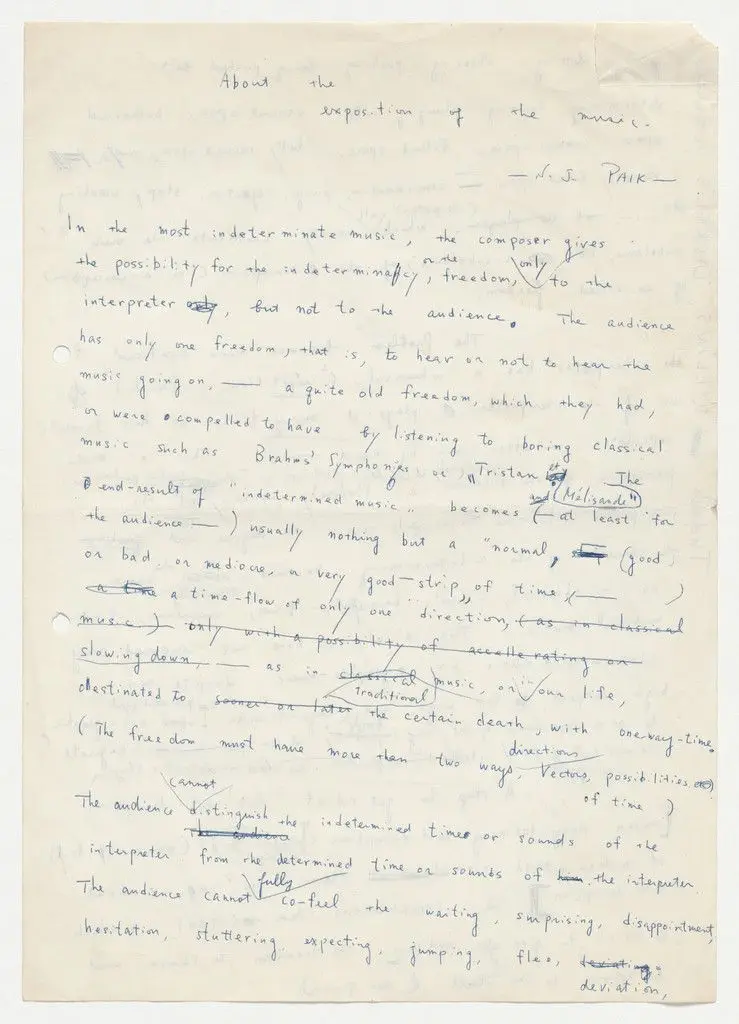 About the
exposition of the music.
— N. J. PAIK —
In the most indeterminate music, the composer gives
the possibility for the indeterminacy, or the freedom, only to the
interpreter only, but not to the audience. The audience
has only one freedom, that is, to hear or not to hear the
music going on, — a quite old freedom, which they had,
or were compelled to have by listening to boring classical
music such as Brahms' Symphonies or "Tristan et and Mélisande" The
end-result of "indetermined music" becomes (— at least for
the audience —) usually nothing but a "normal, (good
or bad or mediocre, or very good — strip" of time, (— )
a time a time-flow of only one direction, (as in classical
music.) only with a possibility of accellerating or
slowing down, — as in classical traditional music, or in our life,
destinated to sooner or later the certain death, with one-way-time.
( The freedom must have more than two ways, directions, Vectors, possibilities
of time )
The audience cannot distinguish the indetermined time or sounds of the
the audience
interpreter from the determined time or sounds of him the interpreter.
The audience cannot fully co-feel the waiting, surprising, disappointment,
hesitation, stuttering, expecting, jumping, flee, deviating
deviation,